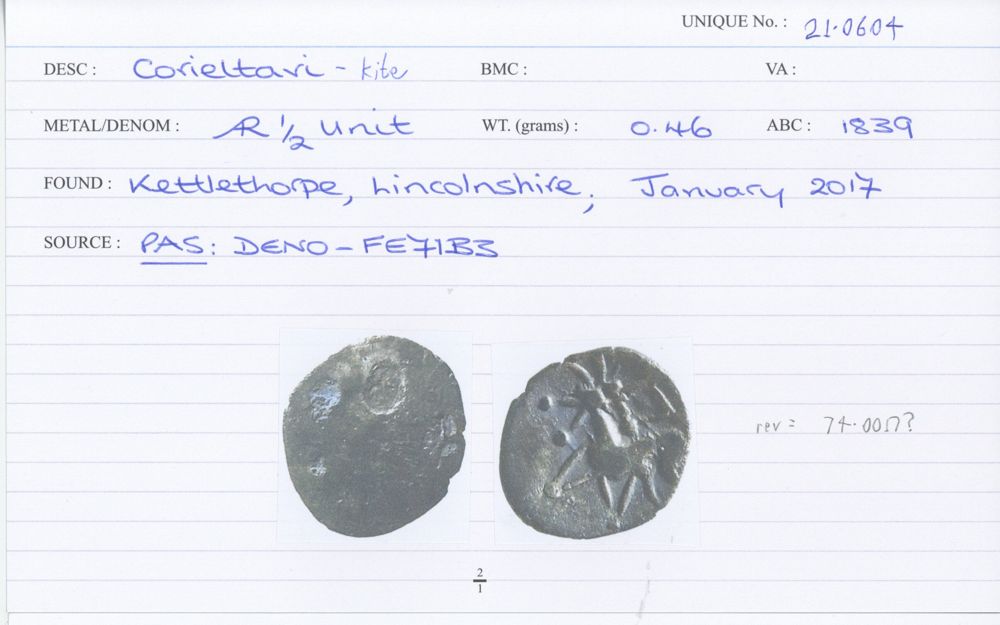 UNIQUE No. : 21.0604
DESC : Corieltavi - kite BMC : VA :
METAL/DENOM : AR 1/2 Unit WT. (grams) : 0.46 ABC : 1839
FOUND : Kettlethorpe, Lincolnshire; January 2017
SOURCE : PAS: DENO-FE71B3
rev =
2
1